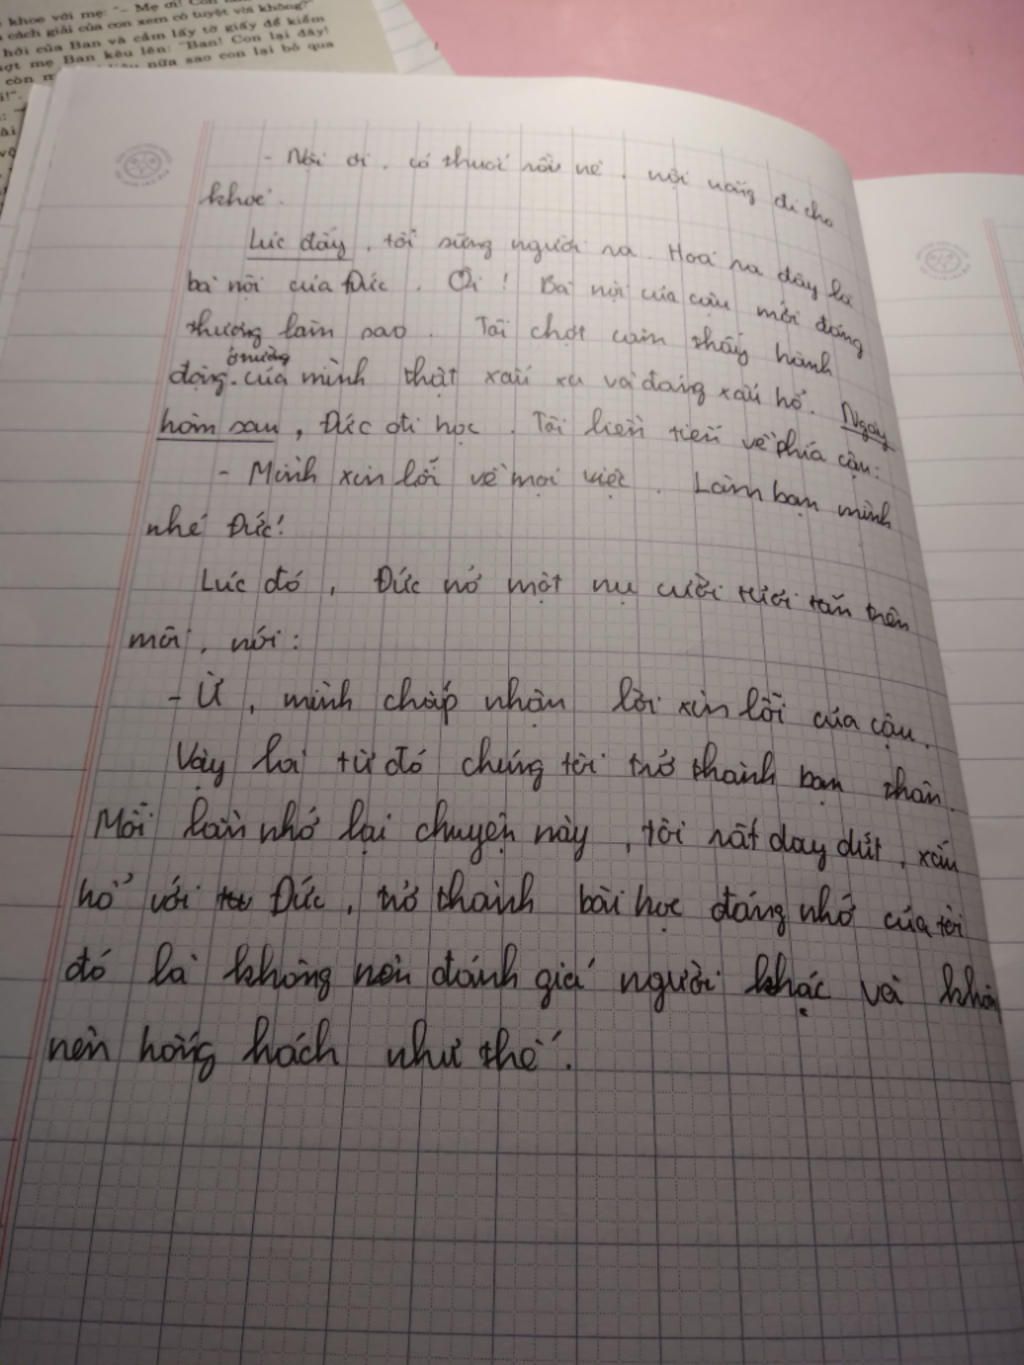 khoe với mẹ: "- Mẹ ơi!
cách giải của con xem có tuyệt vời không?"
hỏi của Ban và cầm lấy tờ giấy để kiểm
mẹ Ban kêu lên: "Ban! Con lại đây!
còn
nữa sao con lại bỏ qua
- Nội ơi, có thuốc rồi nè, nội uống đi cho
khoẻ.
Lúc đấy, tôi sững người ra. Hoá ra đây là
bà nội của Đức. Ôi! Bà nội của cậu mới đáng
thương làm sao. Tôi chợt cảm thấy hành
động của mình thật xấu xa và đáng xấu hổ. Ngày
hôm sau, Đức đi học. Tôi liền tiến về phía cậu:
- Mình xin lỗi về mọi việc. Làm bạn mình
nhé Đức!
Lúc đó, Đức nở một nụ cười tươi tắn trên
môi, nói:
- Ừ, mình chấp nhận lời xin lỗi của cậu.
Vậy là từ đó chúng tôi trở thành bạn thân.
Mỗi lần nhớ lại chuyện này, tôi rất day dứt, xấu
hổ với Đức, trở thành bài học đáng nhớ của tôi
đó là không nên đánh giá người khác và
nên hống hách như thế.